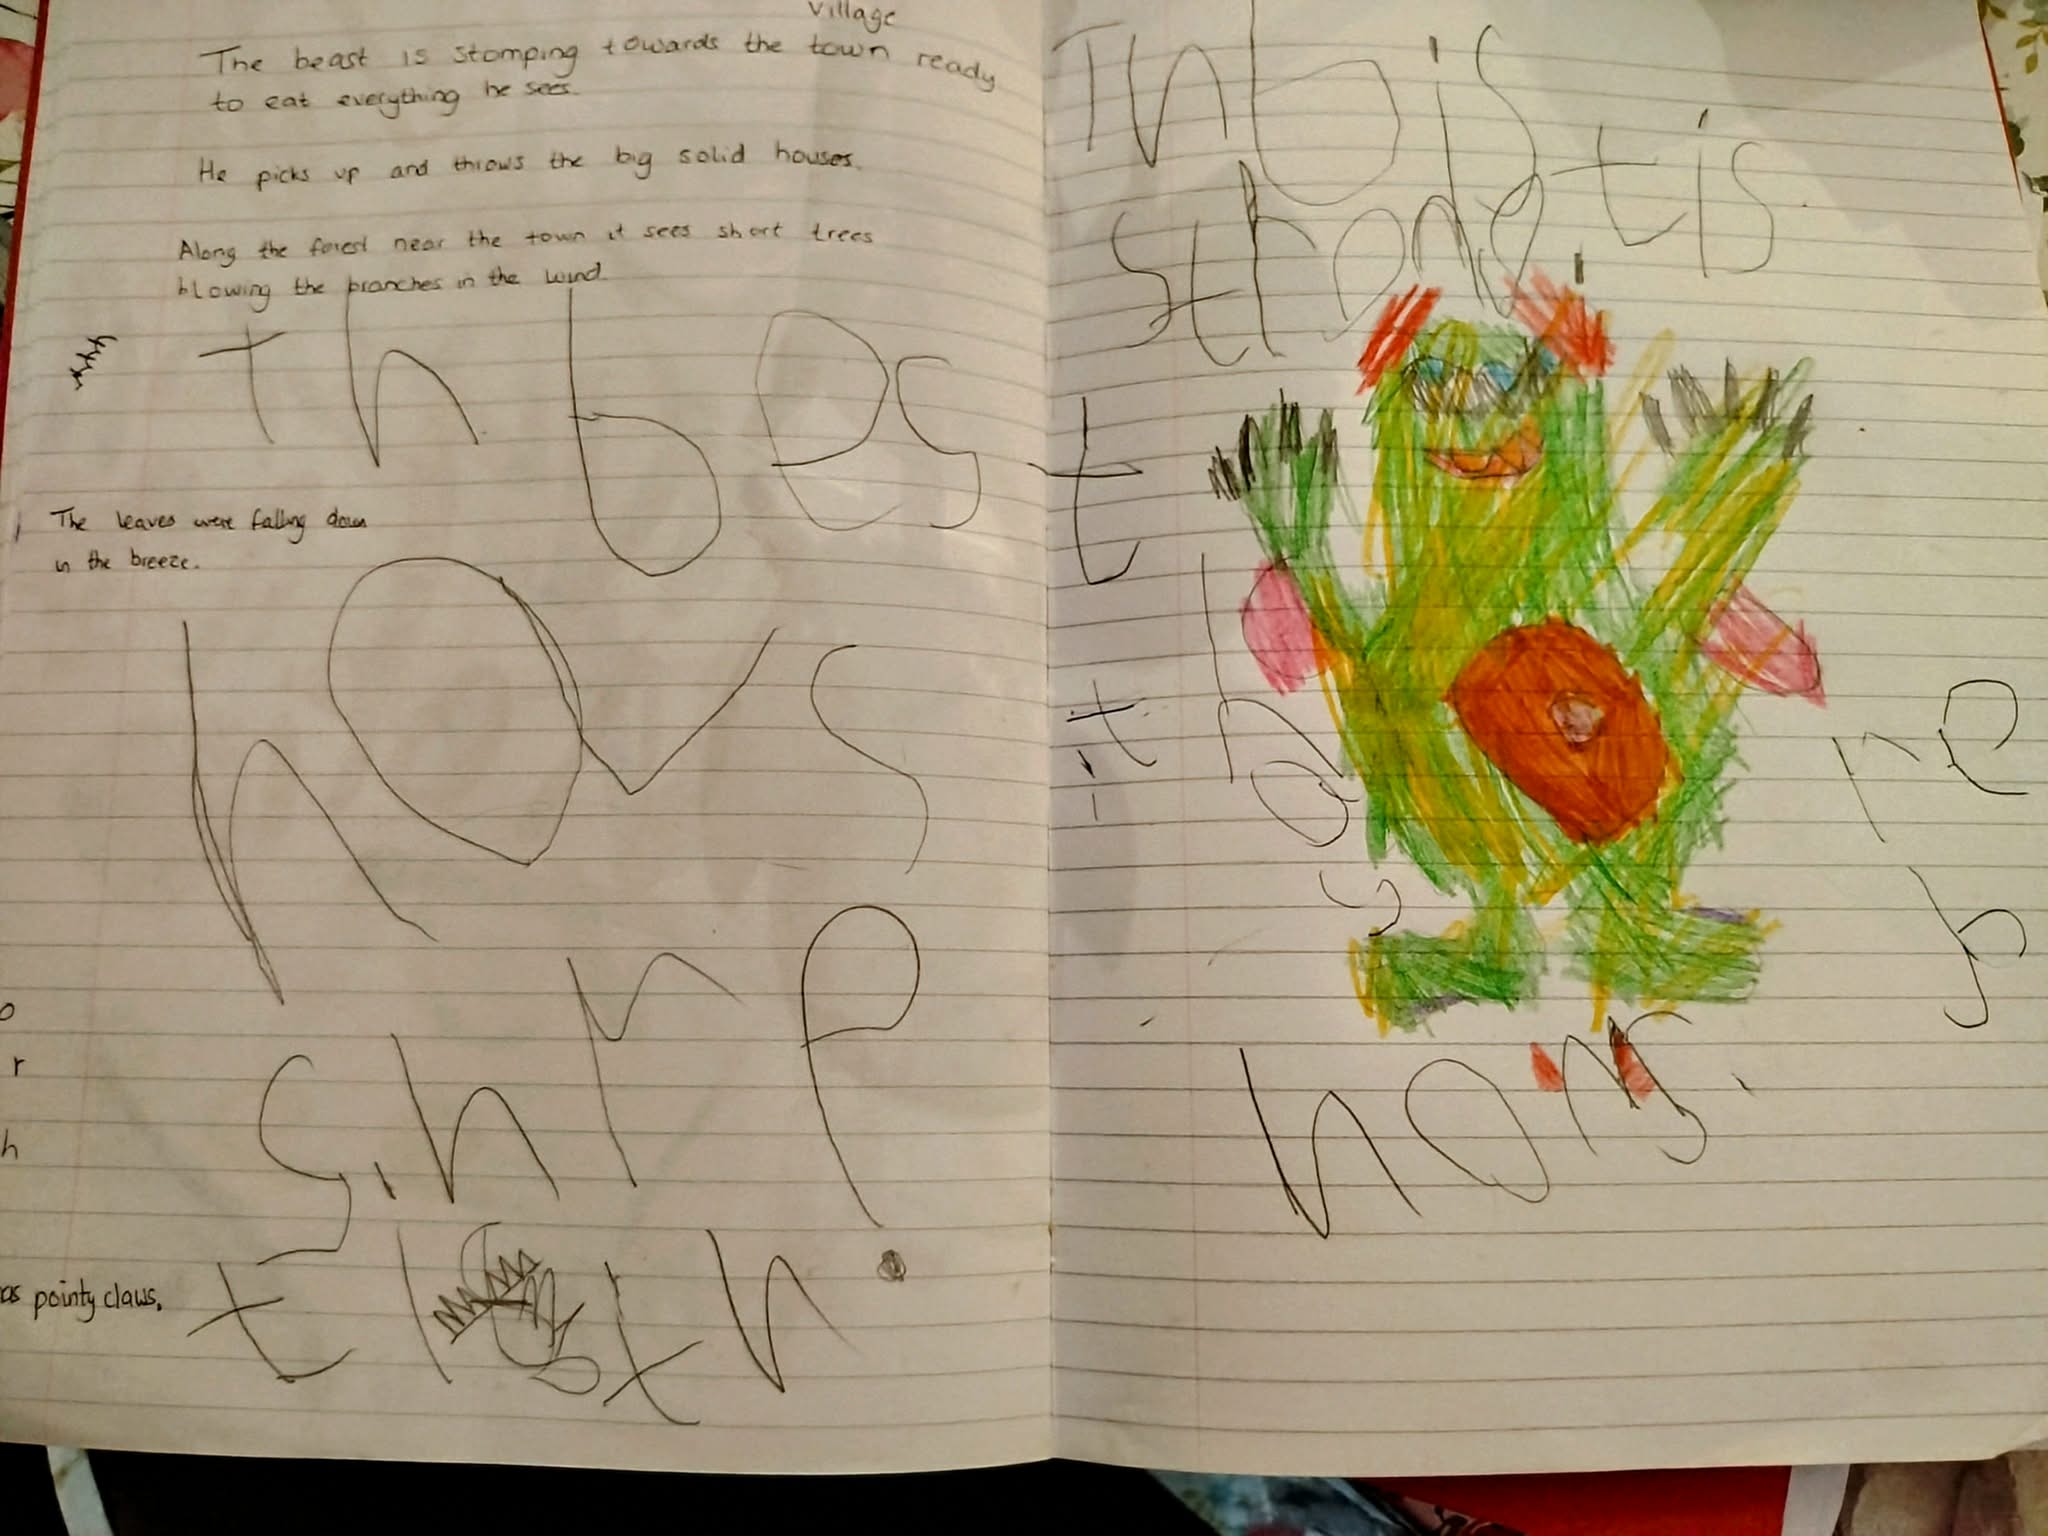 village
The beast is stomping towards the town ready
to eat everything he sees.
He picks up and throws the big solid houses.
Along the forest near the town it sees short trees
blowing the branches in the wind.
Th best
The leaves were falling down
in the breeze.
has
shrp
t th.
o
r
h
as pointy claws.
Th b is
strong. t is
it has
re
b
hons.